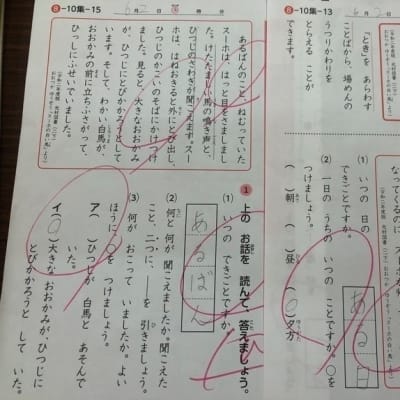 8-10集-15
6月2日
あるばんのこと、ねむっていた
スーホは、はっと目をさましまし
た。けたたましい馬の鳴き声と、
ひつじのさわぎが聞こえます。スー
ホは、はねおきると外にとび出し、
ひつじのかこいのそばにかけつけ
ました。見ると、大きなおおかみ
が、ひつじにとびかかろうとして
います。そして、わかい白馬が、
おおかみの前に立ちふさがって、
ひっしにふせいでいました。
1 上の お話を 読んで、答えましょう。
(1) いつの できごとですか。
あるばん
(2) 何と何が 聞こえましたか。聞こえた
こと、二つに、――を 引きましょう。
(3) 何が おこって いましたか。よい
ほうに ○を つけましょう。
ア( )ひつじが 白馬と あそんで
いた。
イ(○)大きな おおかみが、ひつじに
とびかかろうと して いた。
8-10集-13
6月2日
「とき」を あらわす
ことばから、場めんの
うつりかわりを
とらえる ことが
できます。
(1) いつの 日の
できごとですか。
ある日
(2) 一日の うちの いつの ことですか。○を
つけましょう。
( )朝 ( )昼 (○)夕方